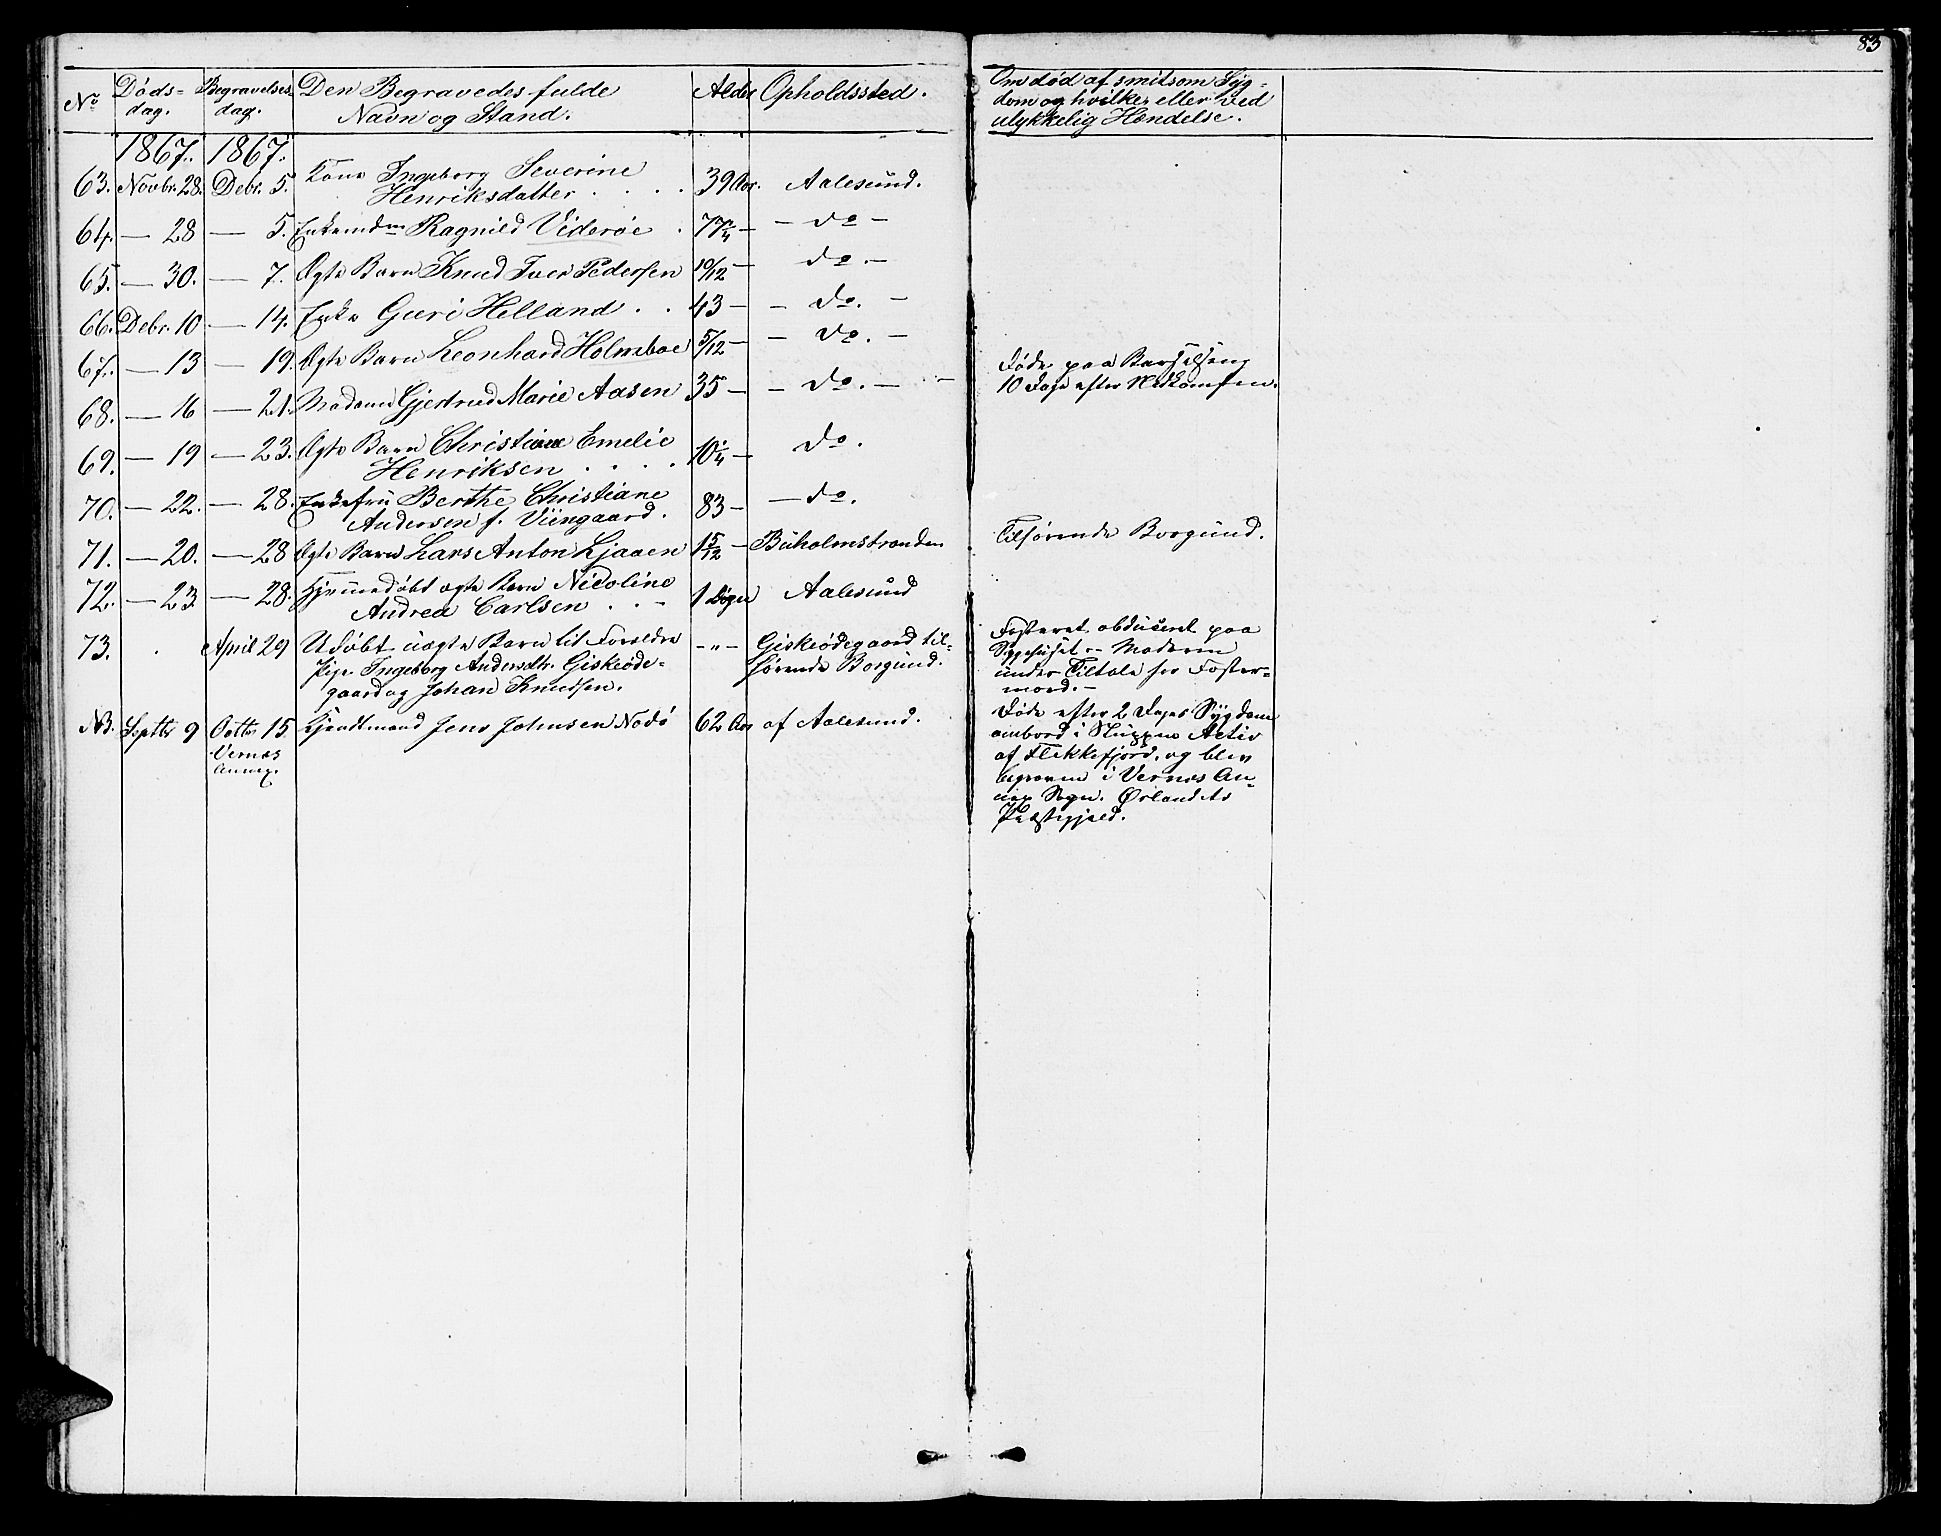 83
No Døds- Begravelses Den Begravedes fulde Alder Opholdssted. Om død af smitsom Syg-
dag. dag. Navn og Stand. dom og hvilken eller ved
ulykkelig Hændelse.
1867. 1867.
63. Novbr. 28. Debr. 5. Kone Ingeborg Severine
Henriksdatter . . . . 39 Aar. Aalesund.
64. — 28 — 5. Ragnild Viderøe . 77 2/4 — — do —
65. — 30. — 7. Ægte Barn Knud Iver Pedersen 10/12 — do. —
66. Debr. 10 — 14. Enke Guri Helland . . 43 — — do. —
67. — 13 — 19. Ægte Barn Leonhard Holmboe 5/12 — — do. —
68. — 16 — 21. Madame Gjertrud Marie Aasen 35 — — do. — Døde paa Barselseng
10 Dage efter Nedkomsten.
69. — 19 — 23. Ægte Barn Christiane Emelie
Henriksen . . . . 10 1/4 — do.
70. — 22. — 28. Enkefru Berthe Christiane
Andersen f. Viingaard. 83 — — do.
71. — 20. — 28 Ægte Barn Lars Anton Ljaaen 1 5/12 — Buholmstranden Tilhørende Borgund.
72. — 23 — 28. Hjemmedøbt ægte Barn Nicoline
Andrea Carlsen . . — 1 Døgn Aalesund
73. . April 29 Udøbt uægte Barn til Forældre -"- Giskeødegaard til- Fosteret obduceret paa
Pige Ingeborg Andersdtr. Giskeøde- hørende Borgund. Sygehuset — Moderen
gaard og Johan Knudsen. under Tiltale for Foster-
mord. —
NB. Septbr 9 Octbr 15 Kjendtmand Jens Johnsen Nodø 62 Aar af Aalesund. Døde efter 2 Dages Sygdom
Vernæs ombord i Skuppen Activ
Annex. af Flekkefjord, og blev
begraven i Vernæs An-
nex Sogn. Ørlandets
Præstegjeld.